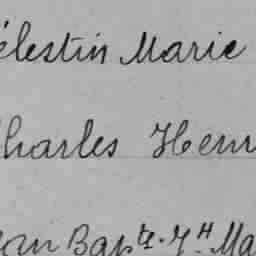 élestin Marie
Charles Henr
ean Bapte. Jh Ma